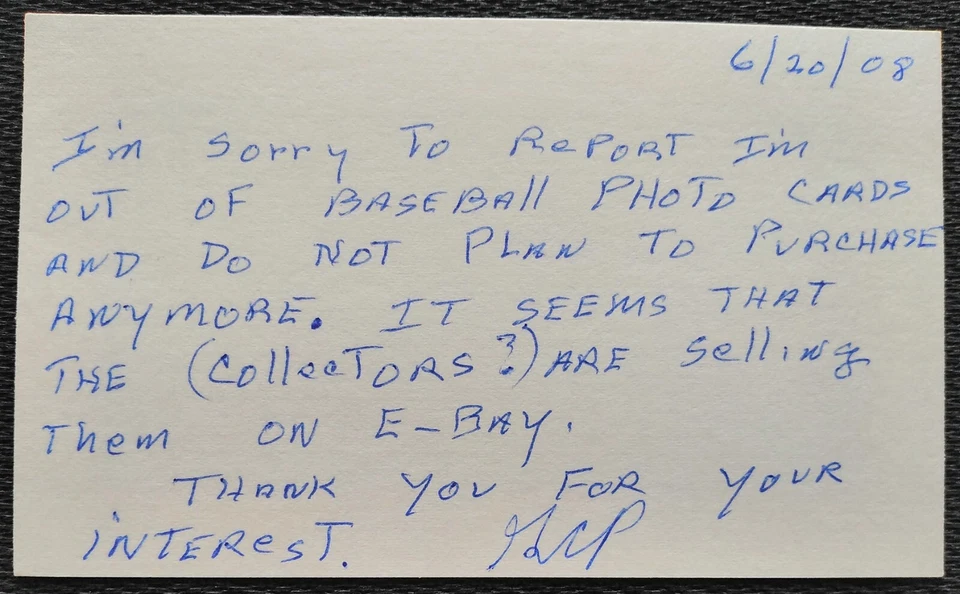 6/20/08
I'm sorry to Report I'm
OUT OF BASEBAll PHOTO CARDS
AND DO NOT PLAN TO PURCHASE
ANYMORE. IT SEEMS THAT
THE (CollecTORS?) ARE Selling
Them ON E-BAY.
THANK YOU FOR YOUR
INTEREST.